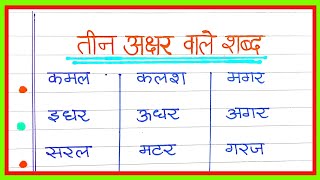 तीन अक्षर वाले शब्द
कमल कलश मगर
इधर ऊधर अगर
सरल मटर गरज